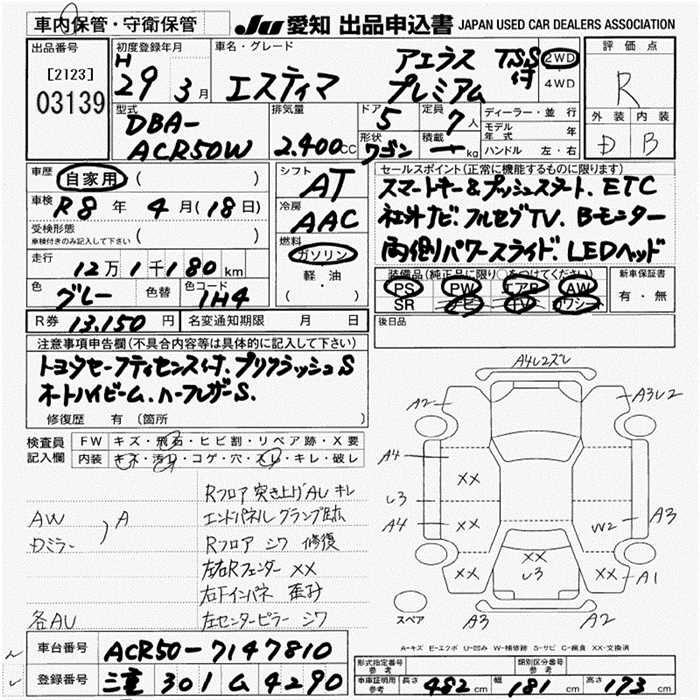 車内保管・守衛保管
JU 愛知 出品申込書 JAPAN USED CAR DEALERS ASSOCIATION
出品番号
[2123]
03139
初度登録年月
H 29 年 3 月
車名・グレード
エスティマ アエラス TSS付
プレミアム
2WD
4WD
評価点
R
外装 内装
D B
型式
DBA-
ACR50W
排気量
2.400 cc
ドア 5
形状 ワゴン
定員 7 人
積載 ー kg
ディーラー・並行
モデル年式 年
ハンドル 左・右
車歴 自家用 ( )
車検 R8 年 4 月 (18 日)
受検形態
車検付きのみ記入して下さい ( )
走行 12万 1千 180 km
色 グレー 色替 色コード 1H4
R券 13,150 円 名変通知期限 月 日
シフト AT
冷房 AAC
燃料
ガソリン
軽・油
( )
セールスポイント(正常に機能するものに限ります)
スマートキー&プッシュスタート. ETC
社外ナビ. フルセグTV. Bモニター
両側パワースライド. LEDヘッド
装備品(純正品に限り○をつけてください) 新車保証書
PS PW エアB AW
SR ナビ TV カワシート
有・無
後日品
注意事項申告欄(不具合内容等は具体的に記入して下さい)
トヨタセーフティセンス付. プリクラッシュS
オートハイビーム. ハーフレザーS.
修復歴 有 (箇所 )
検査員
記入欄
FW キズ・飛石・ヒビ割・リペア跡・X要
内装 キズ・汚れ・コゲ・穴・スレ・キレ・破レ
Rフロア 突き上げAU キレ
AW , A エンドパネル クランプ跡
カミラー Rフロア シワ 修復
左右Rフェンダー XX
右Fインパネ 歪み
各AU 左センターピラー シワ
A4U2ズレ
A2 A3U2
A4 XX
U3
A4 XX W2 A3
XX XX XX A1
U3
A3 A2
スペア
A-キズ E-エクボ U-凹み W-補修跡 S-サビ C-腐食 XX-交換済
車台番号 ACR50-7147810
登録番号 三重 301 ム 4290
形式指定番号 参考 類別区分番号 参考
車庫証明用 参考 長さ 482 cm 幅 181 cm 高さ 173 cm